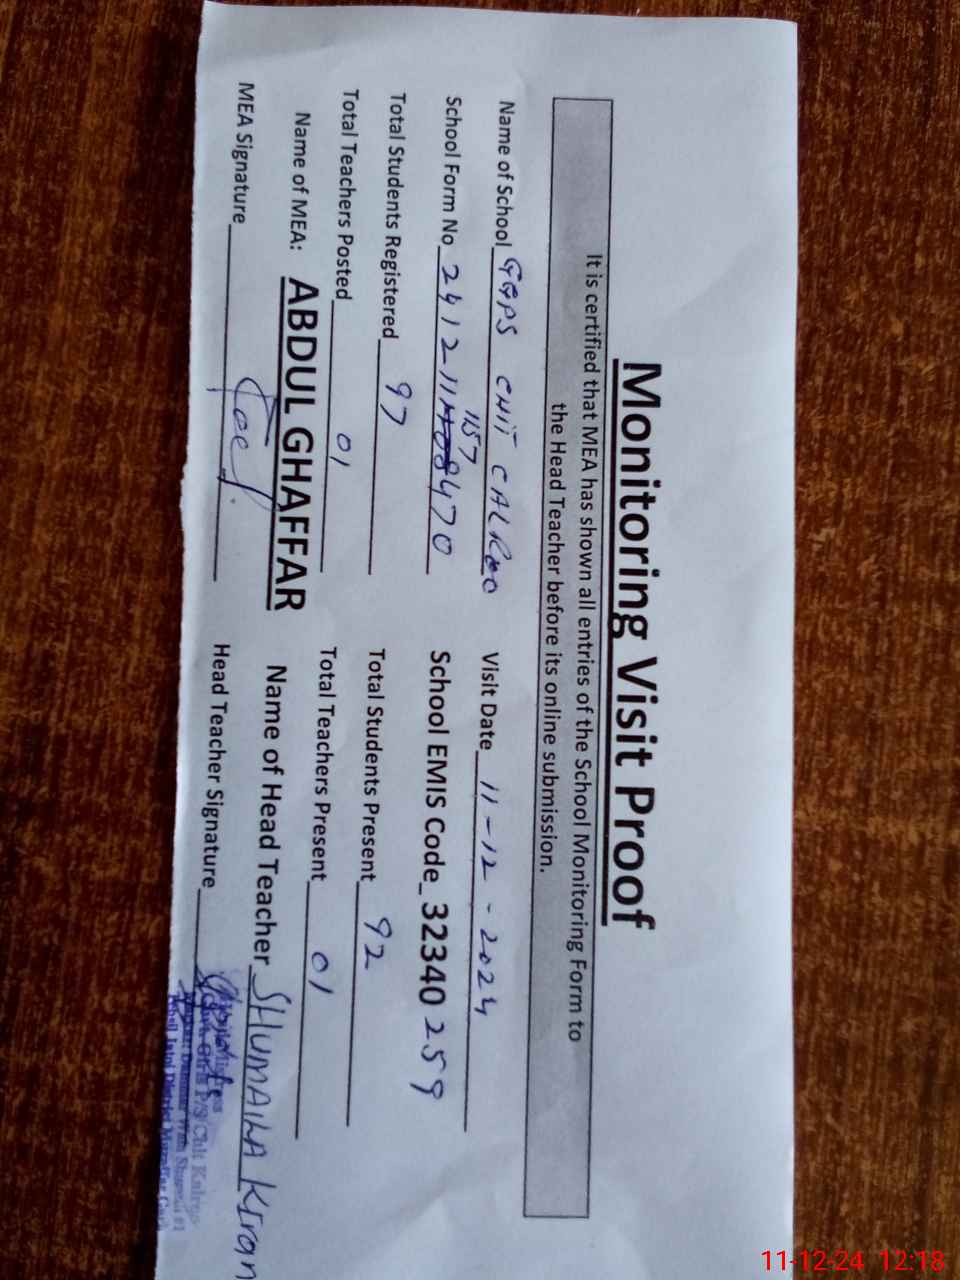 Monitoring Visit Proof
It is certified that MEA has shown all entries of the School Monitoring Form to
the Head Teacher before its online submission.
Name of School GGPS CHIT CALROO Visit Date 11-12-2024
School Form No 2412111157 8470 School EMIS Code_ 32340 259
Total Students Registered 97 Total Students Present 92
Total Teachers Posted 01 Total Teachers Present 01
Name of MEA: ABDUL GHAFFAR Name of Head Teacher SHUMAILA Kiran
MEA Signature Head Teacher Signature
Girls P/S Chit Kalroo
District Muzaffar Garh
11-12-24 12:18